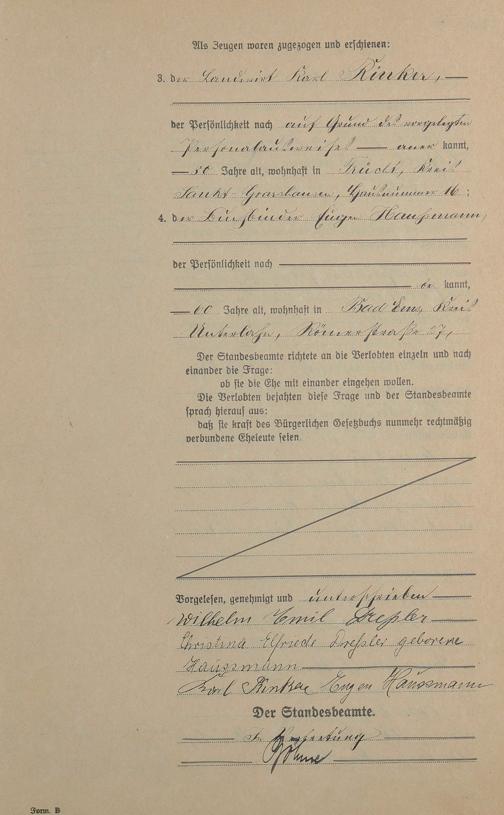 Als Zeugen waren zugezogen und erschienen:
3. der Landwirt Karl Rinker,
der Persönlichkeit nach auf Grund des vorgelegten
Personalausweises aner kannt,
50 Jahre alt, wohnhaft in Kreis
Sankt Goarshausen, Hausnummer 16;
4. der Eugen Haussmann,
der Persönlichkeit nach
be kannt,
60 Jahre alt, wohnhaft in Bad Ems, Kreis
Unterlahn, Römerstraße 27,
Der Standesbeamte richtete an die Verlobten einzeln und nach
einander die Frage:
ob sie die Ehe mit einander eingehen wollen.
Die Verlobten bejahten diese Frage und der Standesbeamte
sprach hierauf aus:
daß sie kraft des Bürgerlichen Gesetzbuchs nunmehr rechtmäßig
verbundene Eheleute seien.
Vorgelesen, genehmigt und unterschrieben
Wilhelm Emil Dreßler
Christina Elfriede Dreßler geborene
Haussmann
Karl Rinker Eugen Haussmann
Der Standesbeamte.
In Vertretung
Form. B